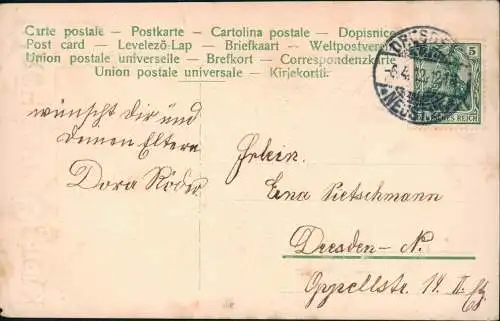 Carte postale – Postkarte – Cartolina postale – Dopisnice
Post card – Levelező-Lap – Briefkaart – Weltpostver
Union postale universelle – Brefkort – Correspondenzkarte
Union postale universale – Kirjekortti.
DRESDEN
5
DEUTSCHES REICH
wünscht Dir und
Deinen Eltern
Dora Röder
Frlein.
Erna Pietschmann
Dresden-N.
Oppellstr. 14 II.